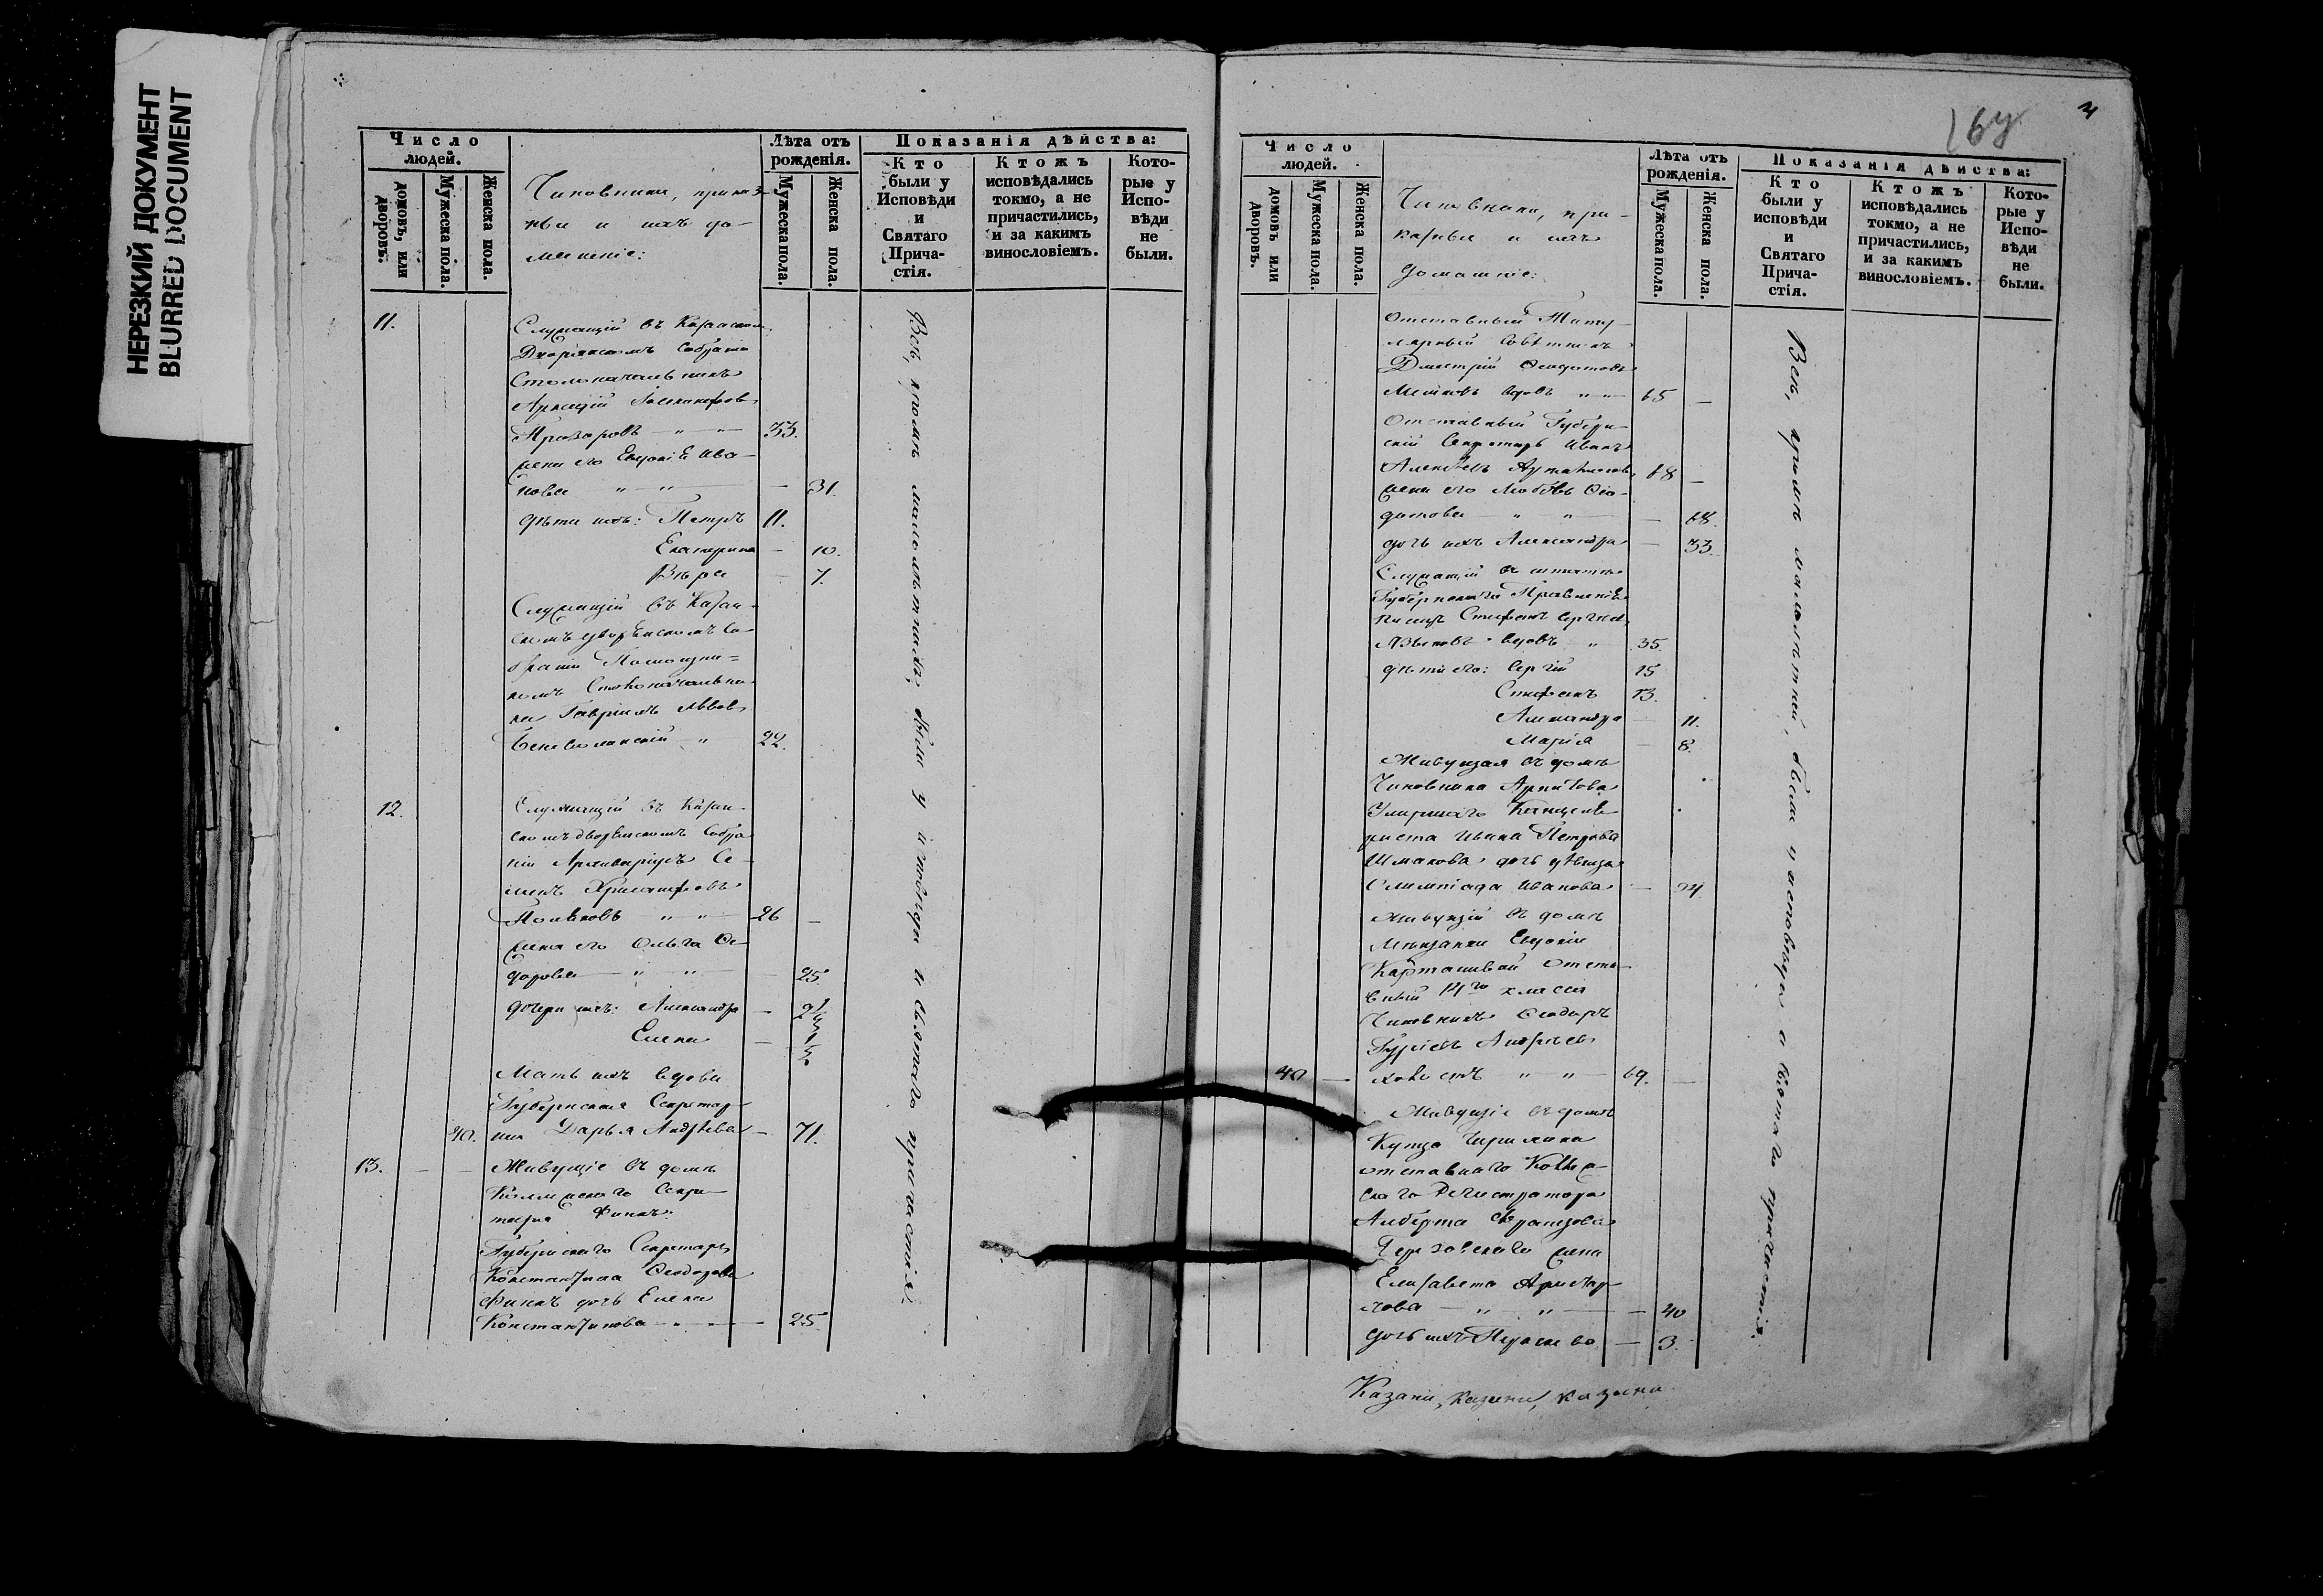 НЕРЕЗКИЙ ДОКУМЕНТ
BLURRED DOCUMENT
Число людей.
домовъ, или дворовъ.
Мужеска пола.
Женска пола.
Чиновники, приказ-
ныи и ихъ до-
машніе:
Лѣта отъ рожденія.
Мужеска пола.
Женска пола.
Показанія дѣйства:
Кто были у Исповѣди и Святаго Прича-стія.
Ктожъ исповѣдались токмо, а не причастились, и за какимъ винословіемъ.
Кото-рые у Испо-вѣди не были.
11.
Служащій въ Казанском
Дворянскомъ Собраніи
Столоначальникъ
Прозоровъ — " — 33.
жена его Евдокія Ива-
нова — " — " — 31.
дѣти ихъ: Петръ 11.
Екатерина — 10.
Вѣра — 7.
Служащій въ Казан-
скомъ дворянскомъ Со-
браніи Помощни-
комъ Столоначальни-
ка Гавріилъ Львовъ
22.
12.
Служащій въ Казан-
скомъ дворянскомъ Собра-
ніи Архиваріусъ Се-
менъ Хрисанфовъ
Поляковъ — " — " — 26 —
жена его Ольга Ѳе-
дорова — " — " — 25.
дочери ихъ: Александра —
Елена —
Мать ихъ вдова
Губернская Секретар-
40. ша Дарья Андреева — 71.
13. — — Живущіе въ домѣ
Коллежскаго Секре-
таря Финкъ:
Губернскаго Секретаря
Константина Ѳеодорова
Финкъ дочь Елена
Константинова — " — 25.
Всѣ, кромѣ малолѣтнихъ, были у исповѣди и Святаго причастія.
164
3
Число людей.
домовъ или дворовъ.
Мужеска пола.
Женска пола.
Чиновники, при-
казныи и ихъ
домашніе:
Лѣта отъ рожденія.
Мужеска пола.
Женска пола.
Показанія дѣйства:
Кто были у исповѣди и Святаго Прича-стія.
Ктожъ исповѣдались токмо, а не причастились, и за какимъ винословіемъ.
Кото-рые у Испо-вѣди не были.
Отставный Титу-
лярный Совѣтникъ
Дмитрій
вдовъ " — 65 —
Отставный Губерн-
скій Секретарь Иванъ
Алексѣевъ 68 —
жена его Любовь Ѳео-
— " — " — 68.
дочь ихъ Александра — 33.
Служащій въ штатѣ
Губернскаго Правленія
Писецъ Стефанъ Сергѣев
Языковъ вдовъ " 35.
дѣти его: Сергій 15
Стефанъ 13.
Александра — 11.
Марія — 8.
Живущая въ домѣ
Чиновника
Умершаго Канцеля-
риста Ивана Петрова
Шмакова дочь дѣвица
Олимпіада Иванова — 24.
Живущій въ домѣ
Мѣщанки Евдокіи
Карташевой отста-
вный 14го класса
Чиновникъ Ѳеодоръ
40 — " — " — 69. —
Живущіе въ домѣ
Купца
отставнаго Коллеж-
скаго Регистратора
Алберта Францова
жена
Елисавета
— " — " — 40
дочь ихъ — 3.
Всѣ, кромѣ малолѣтней, были у исповѣди и Святаго причастія.
Казани, Казани, Казани